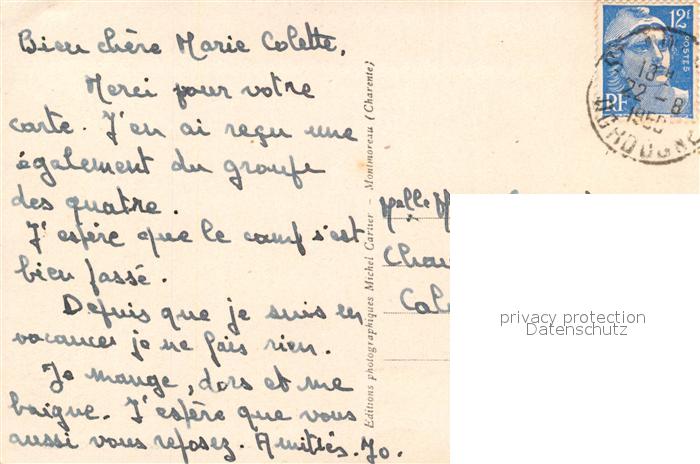 Bien chère Marie Colette,
Merci pour votre
carte. J'en ai reçu une
également du groupe
des quatre.
J'espère que le camp s'est
bien passé.
Depuis que je suis en
vacances je ne fais rien.
Je mange, dors et me
baigne. J'espère que vous
aussi vous reposez. Amitiés. Jo.
Editions photographiques Michel Cartier - Montmoreau (Charente)
12f
POSTES
RF
18H
22-8
1950
DORDOGNE
Melle
privacy protection
Datenschutz